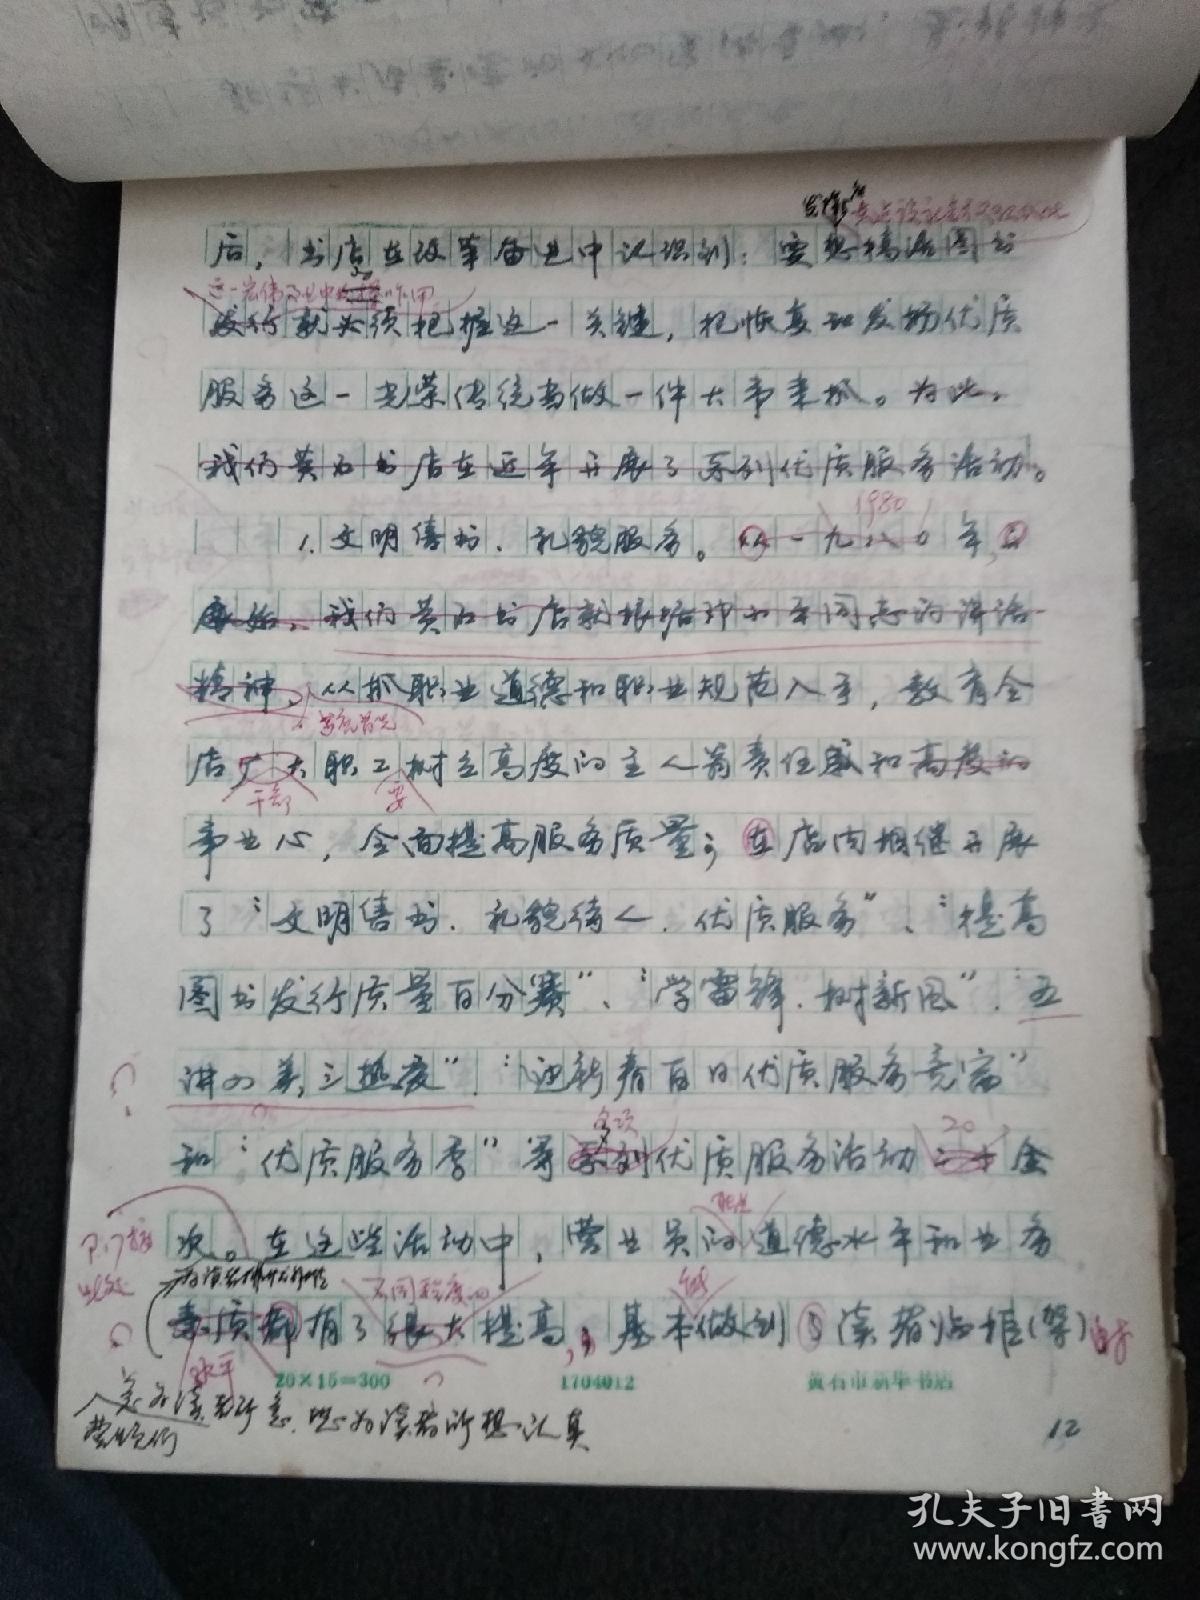 后，书店在改革奋进中认识到：要想搞活图书
发行就必须把握这一关键，把恢复和发扬优质
服务这一光荣传统当做一件大事来抓。为此，
我们黄石书店在近年开展了系列优质服务活动。
1.文明售书、礼貌服务。从一九八〇年
1980
我们黄石书店就根据邓小平同志的讲话
精神，从抓职业道德和职业规范入手，教育全
店广大职工树立高度的主人翁责任感和高度的
干部
要
事业心，全面提高服务质量；在店内相继开展
了“文明售书、礼貌待人、优质服务”、“提高
图书发行质量百分赛”、“学雷锋、树新风”、五
讲四美三热爱”、“迎新春百日优质服务竞赛”
各项
20
和“优质服务季”等系列优质服务活动二十余
次。在这些活动中，营业员的道德水平和业务
不同程度的
素质都有了很大提高，基本做到与读者临柜(架)
水平
20×15=300 1704012 黄石市新华书店
急为读者所急，想为读者所想，认真
12
孔夫子旧书网
www.kongfz.com